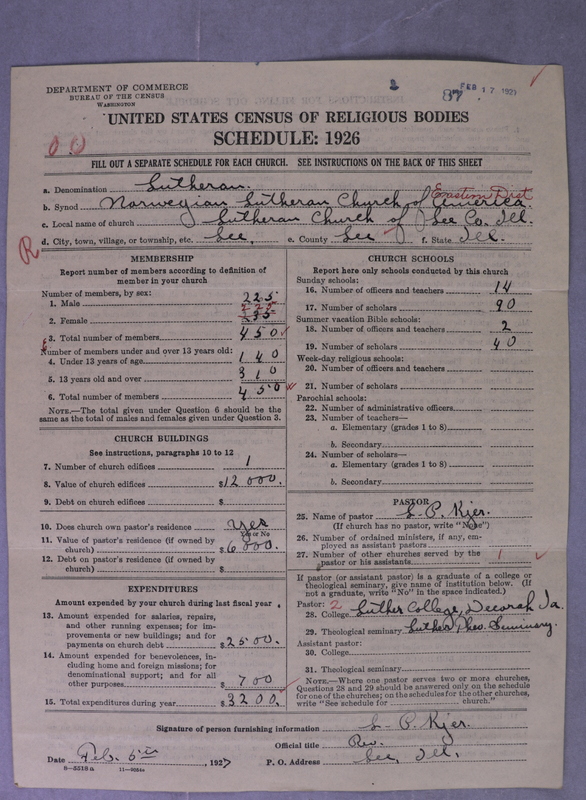 DEPARTMENT OF COMMERCE
BUREAU OF THE CENSUS
WASHINGTON
FEB 17 1927
87
UNITED STATES CENSUS OF RELIGIOUS BODIES
SCHEDULE: 1926
FILL OUT A SEPARATE SCHEDULE FOR EACH CHURCH. SEE INSTRUCTIONS ON THE BACK OF THIS SHEET
a. Denomination Lutheran.
b. Synod Norwegian Lutheran Church of America. Eastern Dist
c. Local name of church Lutheran Church of Lee Co. Ill.
d. City, town, village, or township, etc. Lee, e. County Lee f. State Ill.
R
MEMBERSHIP
Report number of members according to definition of
member in your church
Number of members, by sex:
1. Male 225
2. Female 225
3. Total number of members 450
Number of members under and over 13 years old:
4. Under 13 years of age 140
5. 13 years old and over 310
6. Total number of members 450
NOTE.—The total given under Question 6 should be the
same as the total of males and females given under Question 3.
CHURCH BUILDINGS
See instructions, paragraphs 10 to 12
7. Number of church edifices 1
8. Value of church edifices $12000.
9. Debt on church edifices $
10. Does church own pastor's residence yes
Yes or No
11. Value of pastor's residence (if owned by
church) $6000.
12. Debt on pastor's residence (if owned by
church) $
EXPENDITURES
Amount expended by your church during last fiscal year
13. Amount expended for salaries, repairs,
and other running expenses; for im-
provements or new buildings; and for
payments on church debt $2500.
14. Amount expended for benevolences, in-
cluding home and foreign missions; for
denominational support; and for all
other purposes $700
15. Total expenditures during year $3200.
CHURCH SCHOOLS
Report here only schools conducted by this church
Sunday schools:
16. Number of officers and teachers 14
17. Number of scholars 90
Summer vacation Bible schools:
18. Number of officers and teachers 2
19. Number of scholars 40
Week-day religious schools:
20. Number of officers and teachers
21. Number of scholars
Parochial schools:
22. Number of administrative officers
23. Number of teachers—
a. Elementary (grades 1 to 8)
b. Secondary
24. Number of scholars—
a. Elementary (grades 1 to 8)
b. Secondary
PASTOR
25. Name of pastor S. P. Kjer.
(If church has no pastor, write "None")
26. Number of ordained ministers, if any, em-
ployed as assistant pastors
27. Number of other churches served by the
pastor or his assistants 1
If pastor (or assistant pastor) is a graduate of a college or
theological seminary, give name of institution below. (If
not a graduate, write "No" in the space indicated.)
Pastor: 2
28. College Luther College, Decorah Ia.
29. Theological seminary Luther Theo. Seminary.
Assistant pastor:
30. College
31. Theological seminary
NOTE.—Where one pastor serves two or more churches,
Questions 28 and 29 should be answered only on the schedule
for one of the churches; on the schedules for the other churches,
write "See schedule for church."
Signature of person furnishing information S. P. Kjer.
Official title Rev.
Date Feb. 5th, 1927 P. O. Address Lee, Ill.
8-5518a 11-9084a